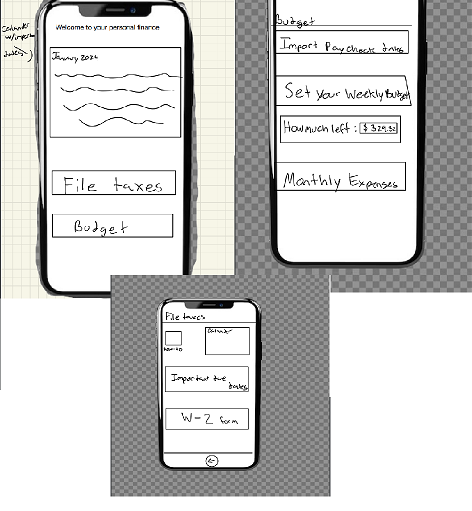 Calendar
w/important
dates
Welcome to your personal finance
January 2024
File taxes
Budget
Budget
Import Paycheck dates
Set your Weekly budget
How much left : $ 329.32
Monthly Expenses
File taxes
Calendar
Important tax
dates
W-2 form